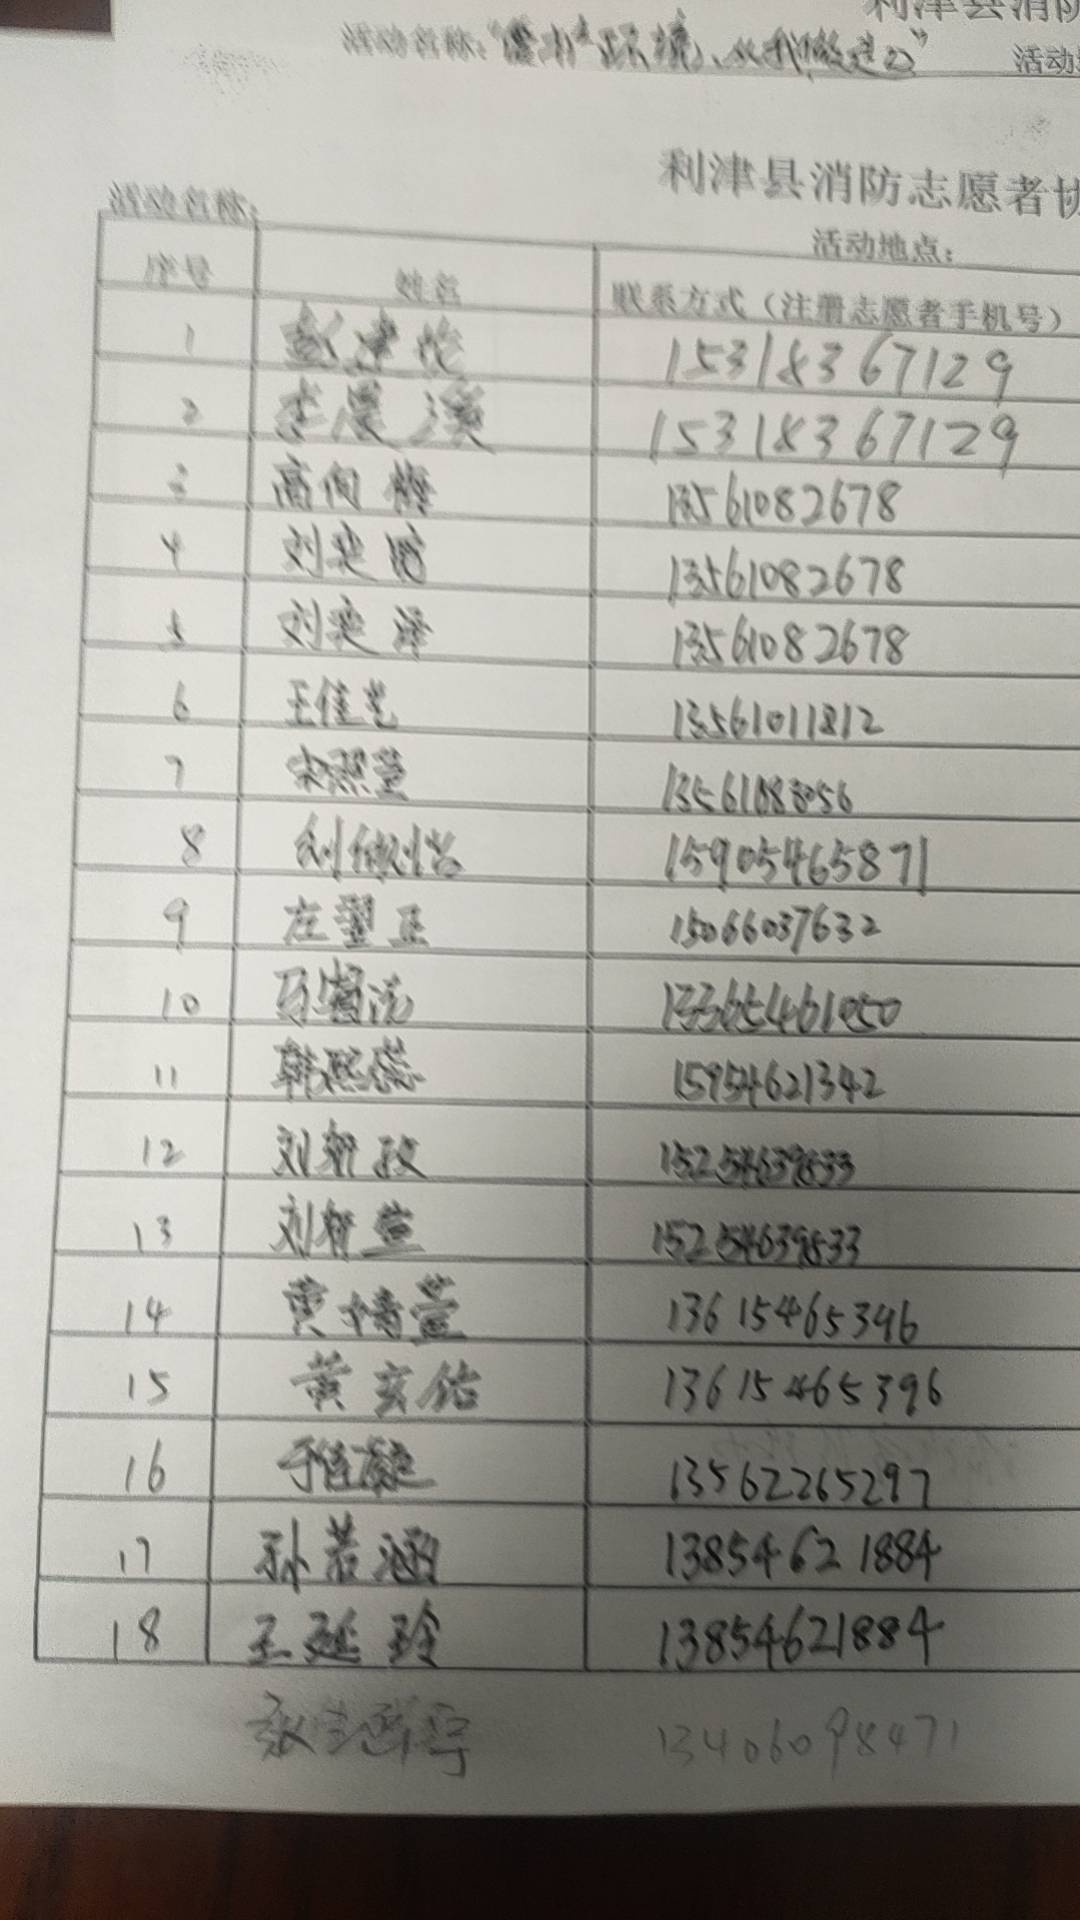 利津县消防
活动名称:
从我做起"
活动
利津县消防志愿者协
活动名称:
活动地点:
序号 姓名 联系方式（注册志愿者手机号）
1 15318367129
2 李 15318367129
3 高向梅 13561082678
4 刘奕 13561082678
5 刘奕泽 13561082678
6 王佳艺 13561011812
7 宋熙萱
8 15905465871
9 左翌正 15066037632
10 13365461050
11 韩熙蕊 15954621342
12 刘轩政 15254639833
13 刘轩萱 15254639833
14 黄婧萱 13615465396
15 黄亥佑 13615465396
16 于佳凝 13562265297
17 孙若涵 13854621884
18 王延玲 13854621884
13406098471